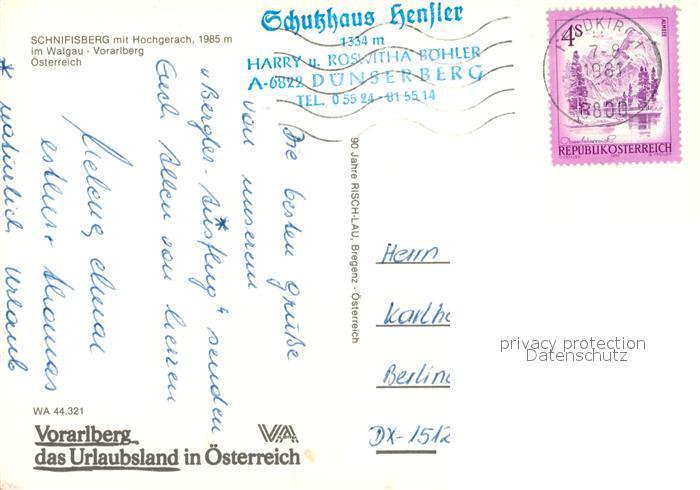 SCHNIFISBERG mit Hochgerach, 1985 m
im Walgau - Vorarlberg
Österreich
Schutzhaus Hensler
1334 m
HARRY u. ROSWITHA BÖHLER
A-6822 DÜNSERBERG
TEL. 0 55 24 - 81 55 14
4s
ALMSEE
REPUBLIK ÖSTERREICH
7-8
1981
6800
Die besten Grüße
von unserem
"Bergler-Ausflug*" senden
Euch Allen von Herzen
Helene, Elmar
Esther + Thomas
* natürlich Urlaub
90 Jahre RISCH-LAU, Bregenz - Österreich
Herrn
Karlhe
Berline
DX-1512
privacy protection
Datenschutz
WA 44.321
Vorarlberg
das Urlaubsland in Österreich